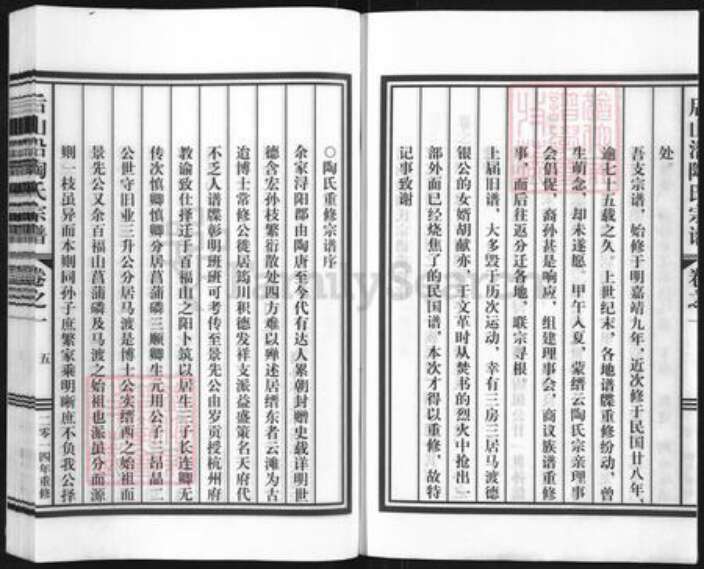 处
吾支宗谱，始修于明嘉靖九年，近次修于民国廿八年，
逾七十五载之久，上世纪末，各地谱牒重修纷动，曾
生萌念，却未遂愿，甲午入夏，蒙缙云陶氏宗亲理事
会倡促，裔孙甚是响应，组建理事会，商议族谱重修
事，而后往返分迁各地，联宗寻根，
上届旧谱，大多毁于历次运动，幸有三房三居马渡德
银公的女婿胡献亦，于文革时从焚书的烈火中抢出一
部外面已经烧焦了的民国谱，本次才得以重修，故特
记事致谢
○陶氏重修宗谱序
余家浔阳郡由陶唐至今代有达人累朝封赠史载详明世
德含宏孙枝繁衍散处四方难以殚述居缙东者云滩为古
迨博士常修公徙居筠川积德发祥支派益盛策名天府代
不乏人谱牒彰明班班可考传至景先公由岁贡授杭州府
教谕致仕择迁于百福山之阳卜筑以居生三子长连卿无
传次慎卿慎卿分居菖蒲磷三顺卿生元用公子三昂晶二
公世守旧业三升公分居马渡是博士公实缙西之始祖而
景先公又余百福山菖蒲磷及马渡之始祖也派虽分而源
则一枝虽异而本则同孙子庶繁家乘明晰庶不负我公择
陶氏宗谱
卷之一
五
二〇一四年重修
FamilySearch